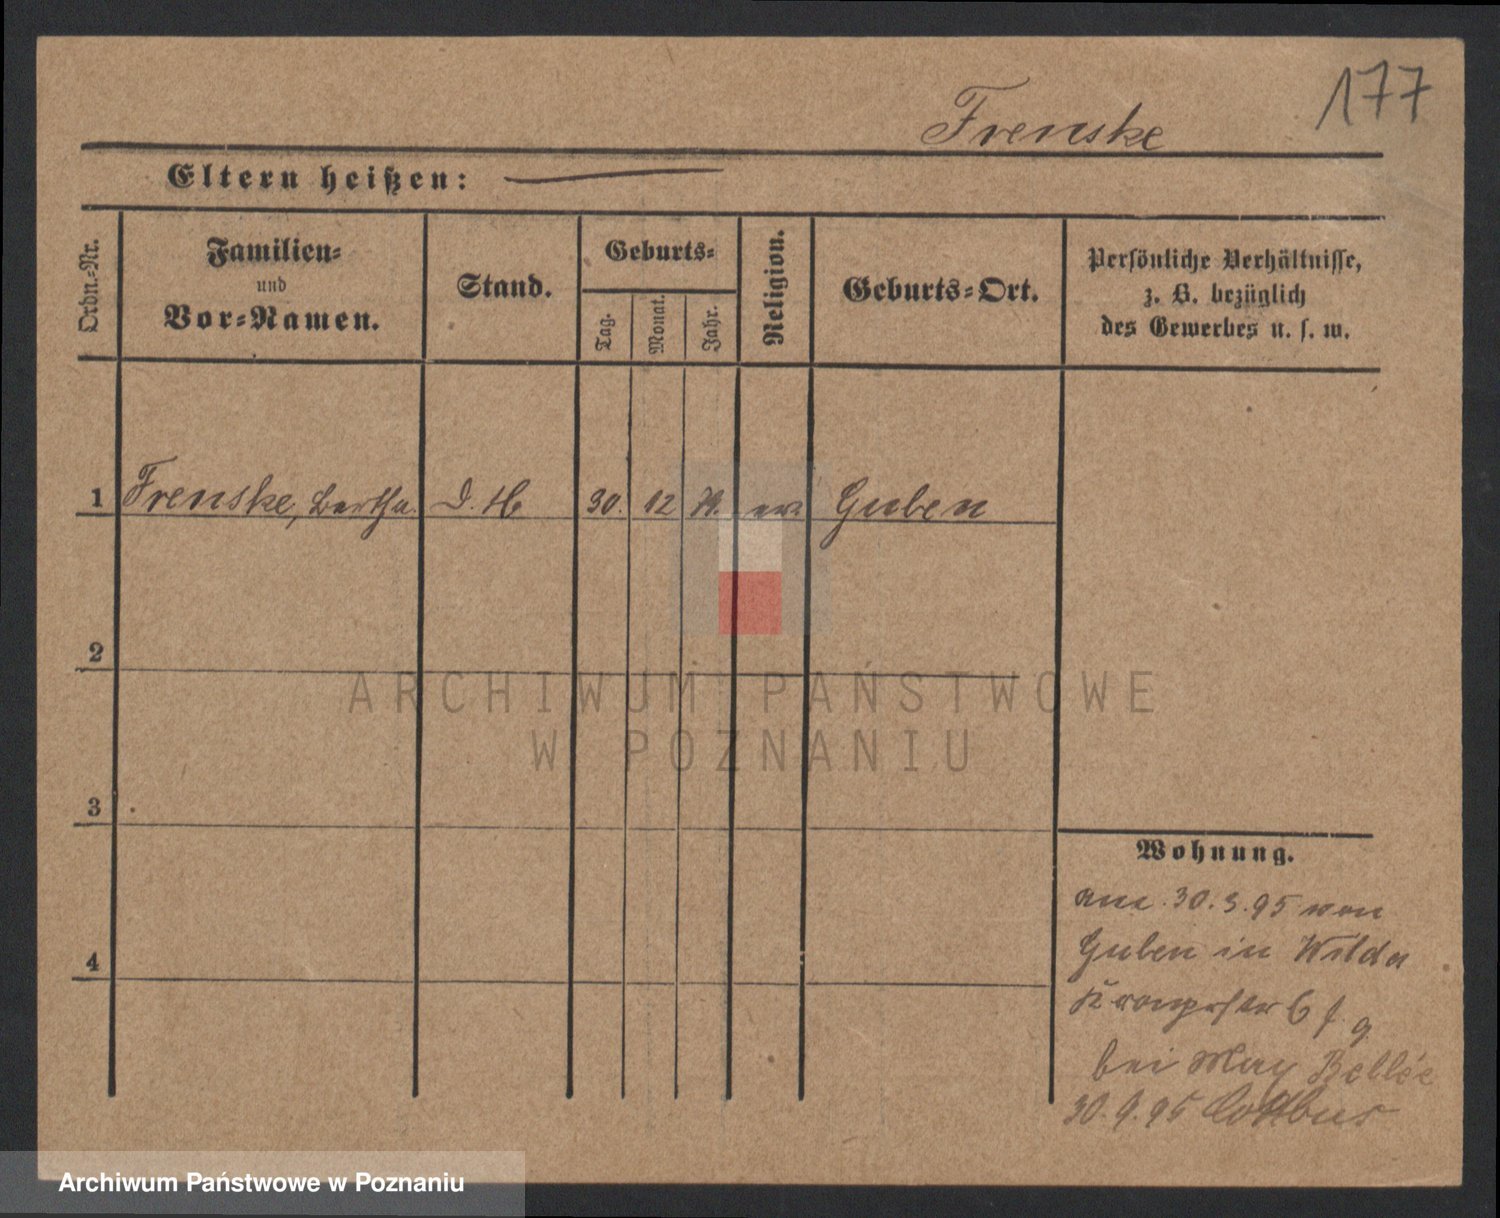 177
Frenske
Eltern heißen:
Ordn.-Nr.
Familien-
und
Vor-Namen.
Stand.
Geburts-
Tag.
Monat.
Jahr.
Religion.
Geburts-Ort.
Persönliche Verhältnisse,
z. B. bezüglich
des Gewerbes u. s. w.
1 Frenske, Bertha. 30. 12 ev. Guben
2
3
4
Wohnung.
am 30.3.95 von
Guben in Wilda
bei May Bellée
30.9.95 Cottbus
ARCHIWUM PAŃSTWOWE
W POZNANIU
Archiwum Państwowe w Poznaniu